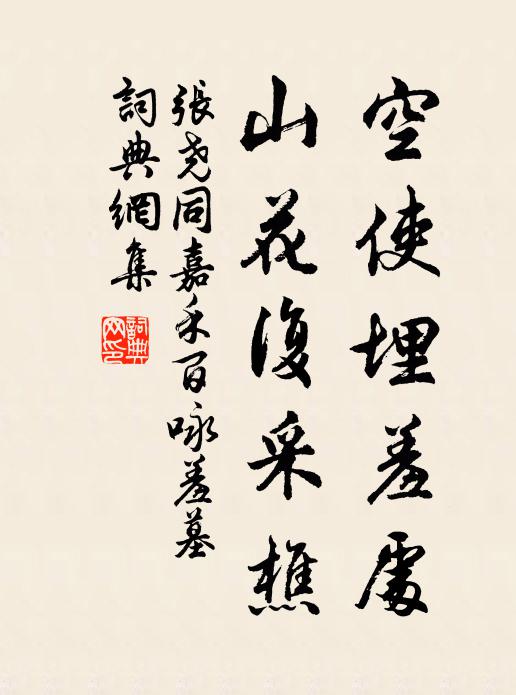 空使埋羞處
山花復采樵
張堯同嘉禾百咏羞墓
詞典網集
詞典
网印